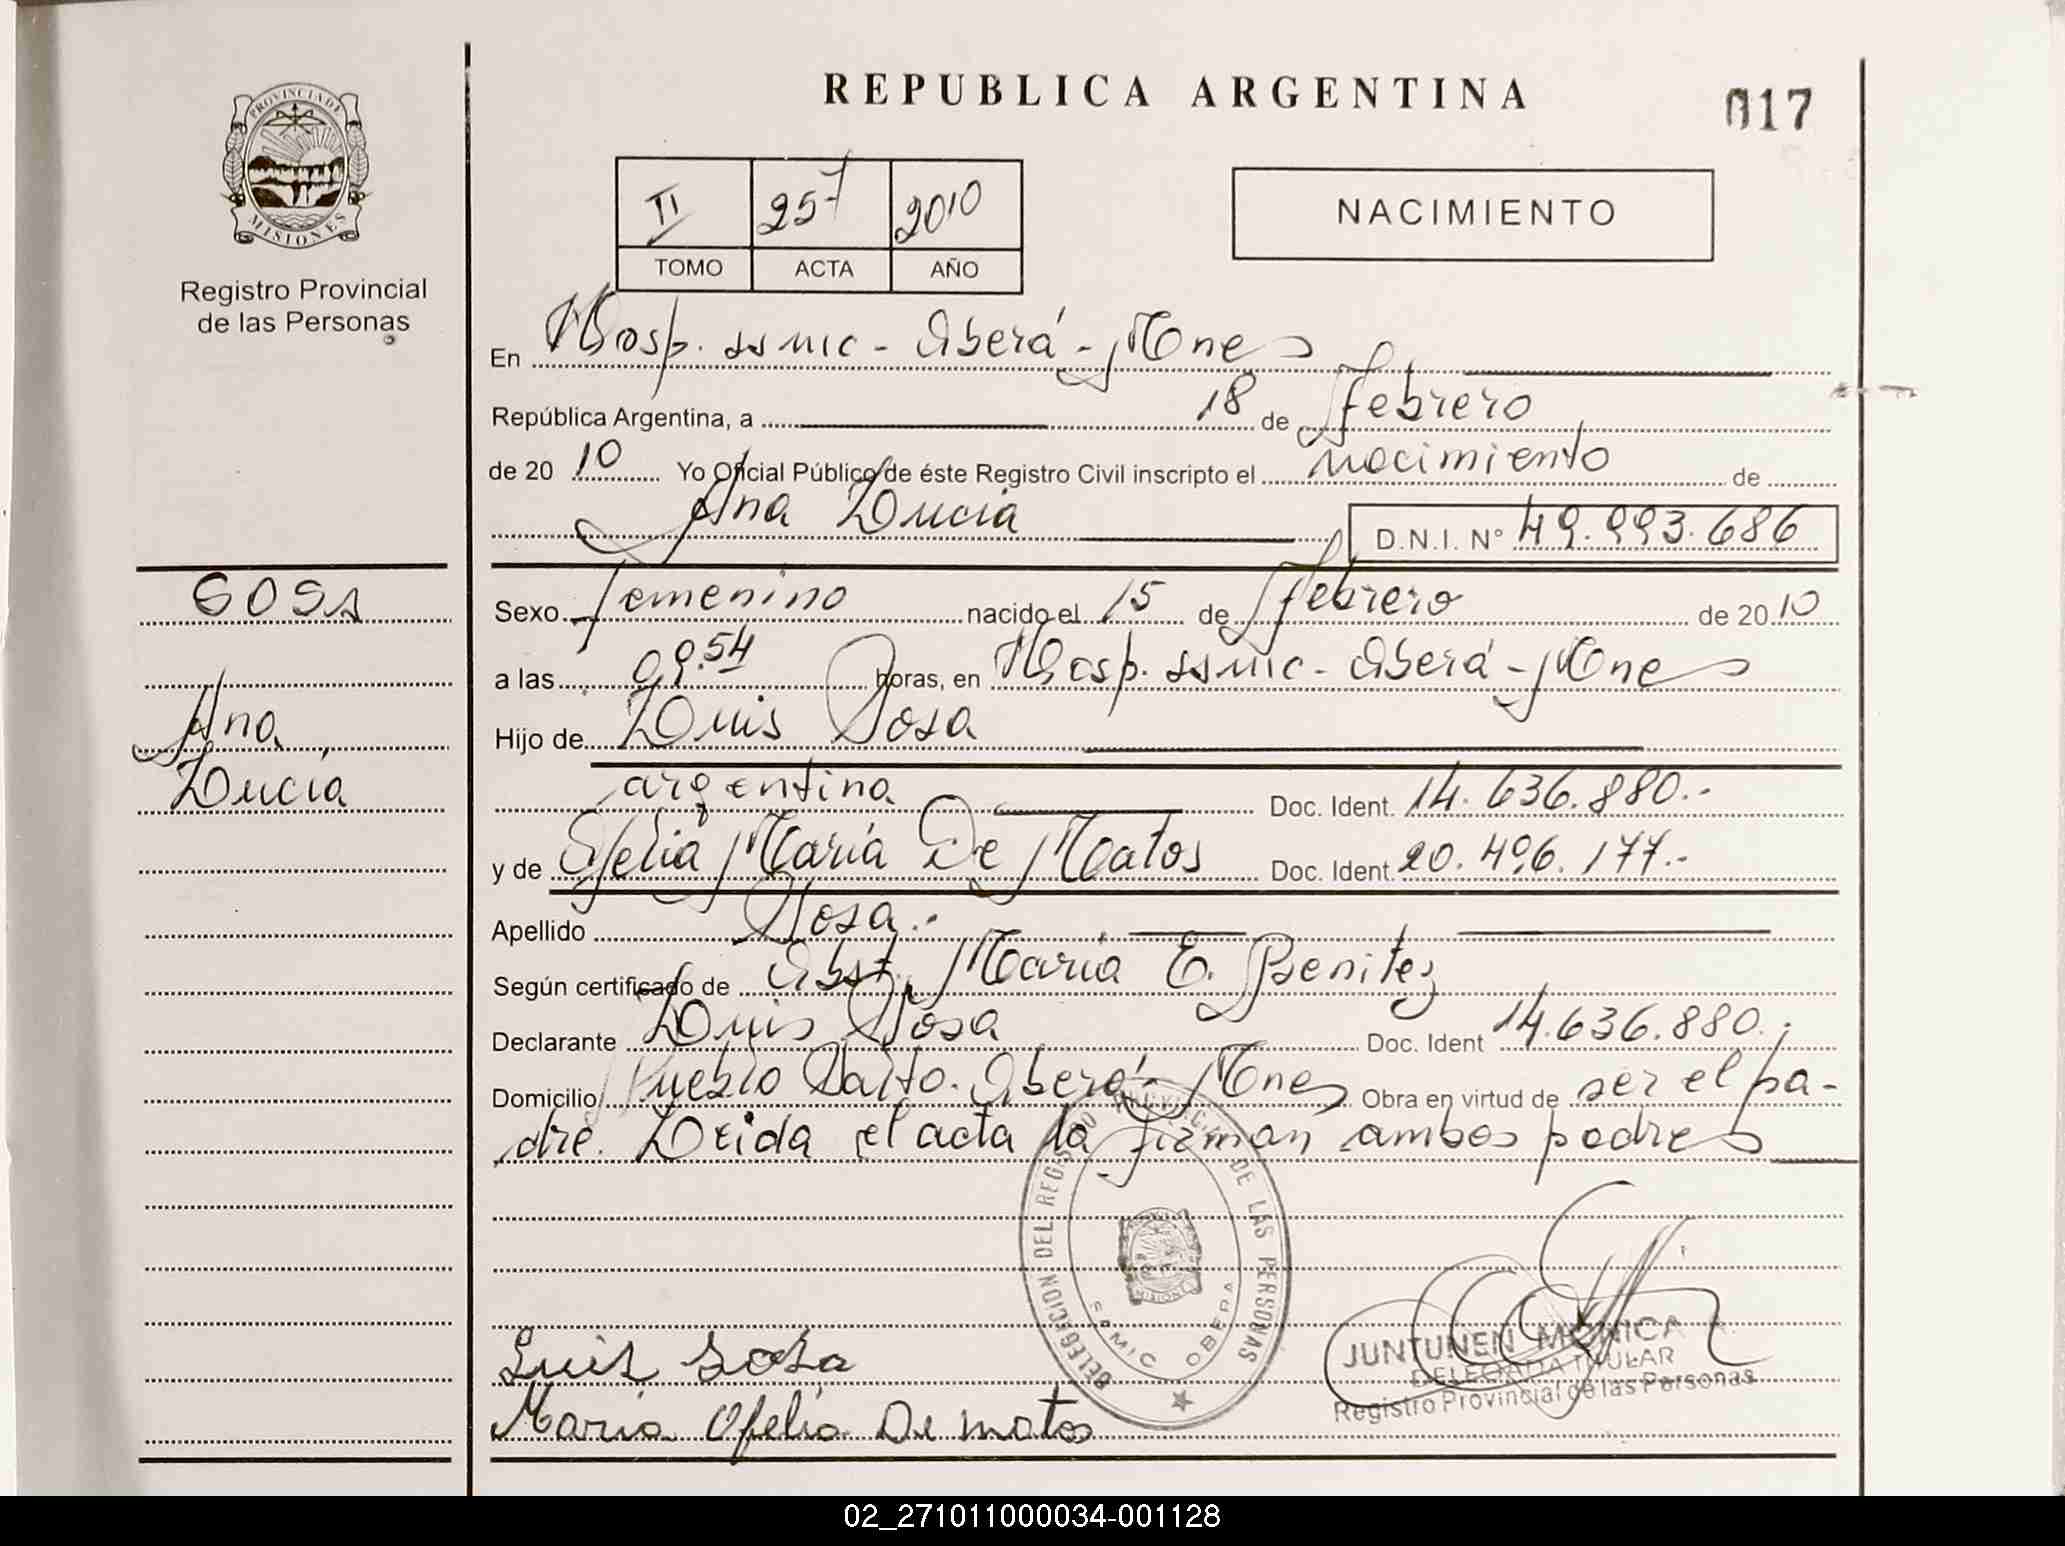 REPUBLICA ARGENTINA
017
PROVINCIA DE
MISIONES
Registro Provincial
de las Personas
II 257 2010
TOMO ACTA AÑO
NACIMIENTO
En Hosp. ssmic - Oberá - Mnes
República Argentina, a 18 de febrero
de 20 10 Yo Oficial Público de éste Registro Civil inscripto el nacimiento de
Ana Lucia D.N.I. N° 49.993.686
SOSA
Ana
Lucia
Sexo femenino nacido el 15 de febrero de 20 10
a las 09.54 horas, en Hosp. ssmic - Oberá - Mnes
Hijo de Luis Sosa
argentina Doc. Ident. 14.636.880.-
y de Ofelia María De Matos Doc. Ident. 20.496.177.-
Apellido Sosa.-
Según certificado de Obst. Maria E. Benitez
Declarante Luis Sosa Doc. Ident 14.636.880.-
Domicilio Pueblo Salto. Oberá - Mnes Obra en virtud de ser el pa-
dre. Leida el acta la firman ambos padres
DELEGACION DEL REGISTRO PROVINCIAL DE LAS PERSONAS
MISIONES
SAMIC OBERA
Luis Sosa
Maria Ofelia De matos
JUNTUNEN MONICA
DELEGADA TITULAR
Registro Provincial de las Personas
02_271011000034-001128